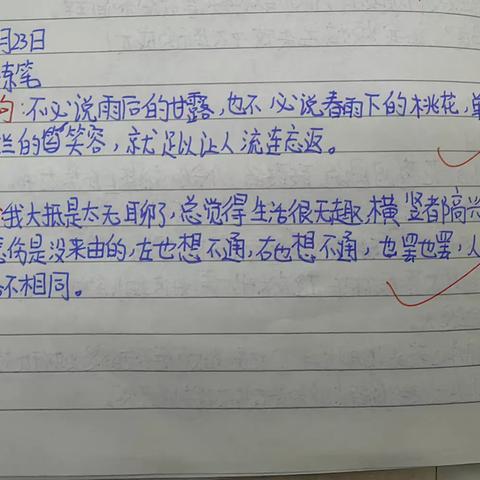 月23日
练笔
句：不必说雨后的甘露，也不必说春雨下的桃花，单
烂的笑容，就足以让人流连忘返。
我大抵是太无聊了，总觉得生活很无趣，横竖都高兴
悲伤是没来由的，左也想不通，右也想不通，也罢也罢，人
不相同。